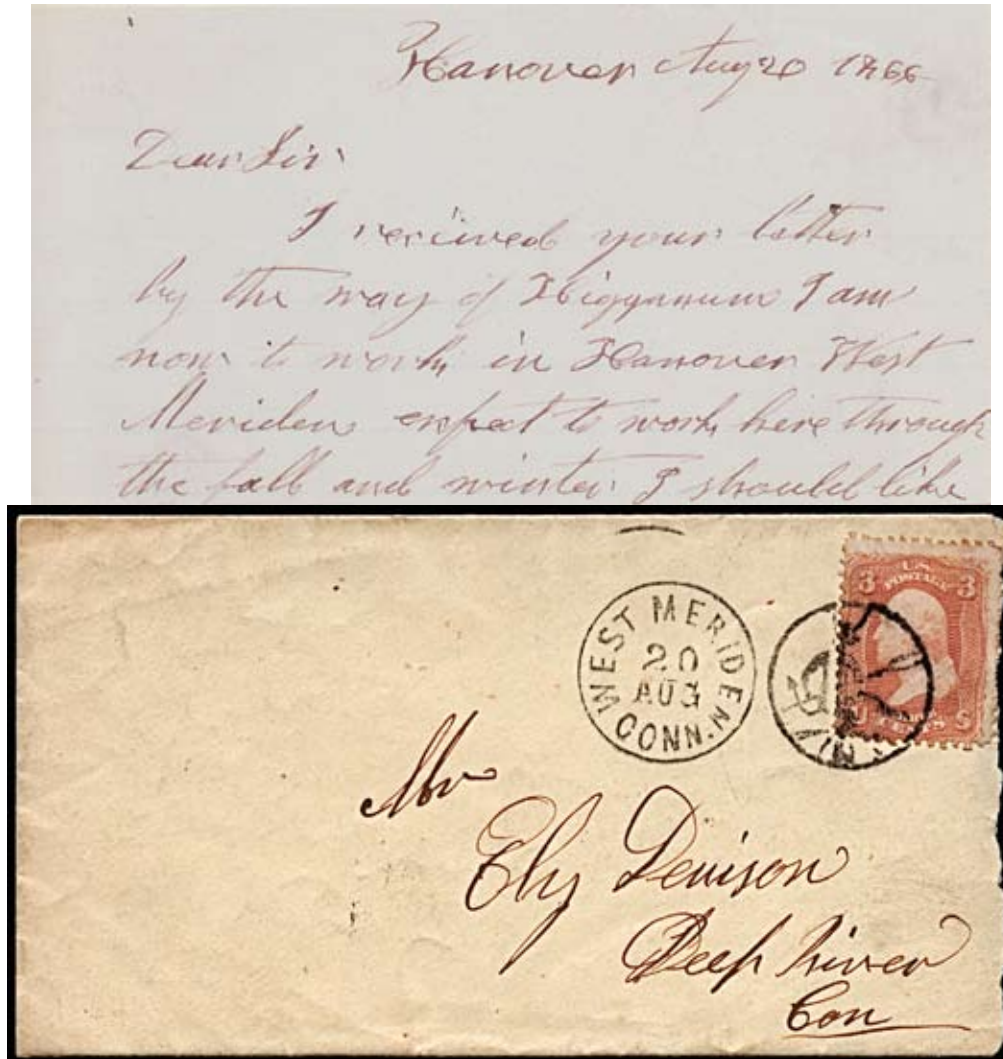 Hanover Aug 20 1866
Dear Sir
I recieved your letter
by the way of Higganum I am
now to work in Hanover West
Meriden expect to work here through
the fall and winter I should like
WEST MERIDEN
20
AUG
CONN.
U.S.
POSTAGE
3 3
CENTS
Mr
Ely Denison
Deep River
Con